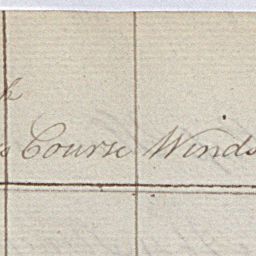 Course Winds